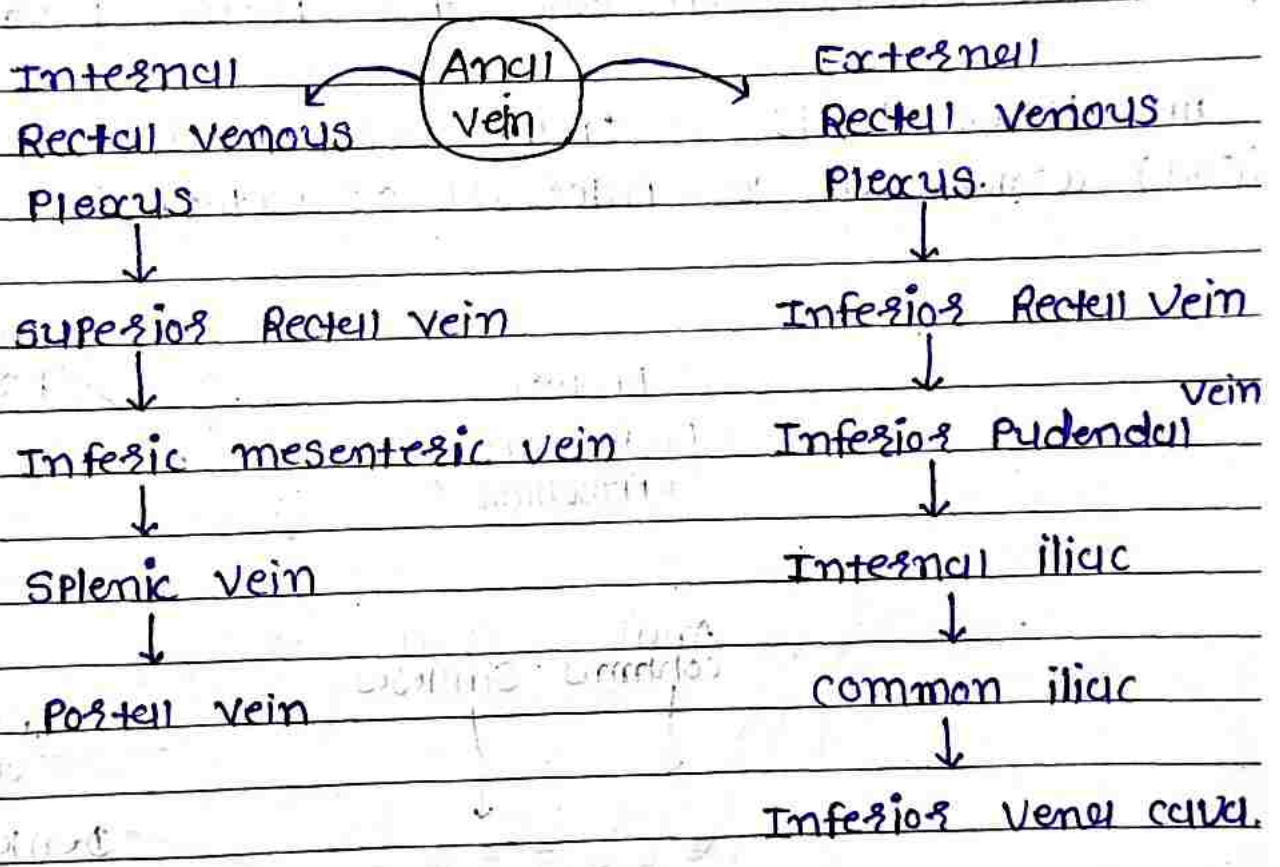 Anal
vein
Internal
Rectal Venous
Plexus
↓
Superior Rectal vein
↓
Inferic mesenteric vein
↓
Splenic vein
↓
Portal vein
External
Rectal Venous
Plexus.
↓
Inferior Rectal Vein
↓
Inferior Pudendal vein
↓
Internal iliac
↓
common iliac
↓
Inferior Vena cava.